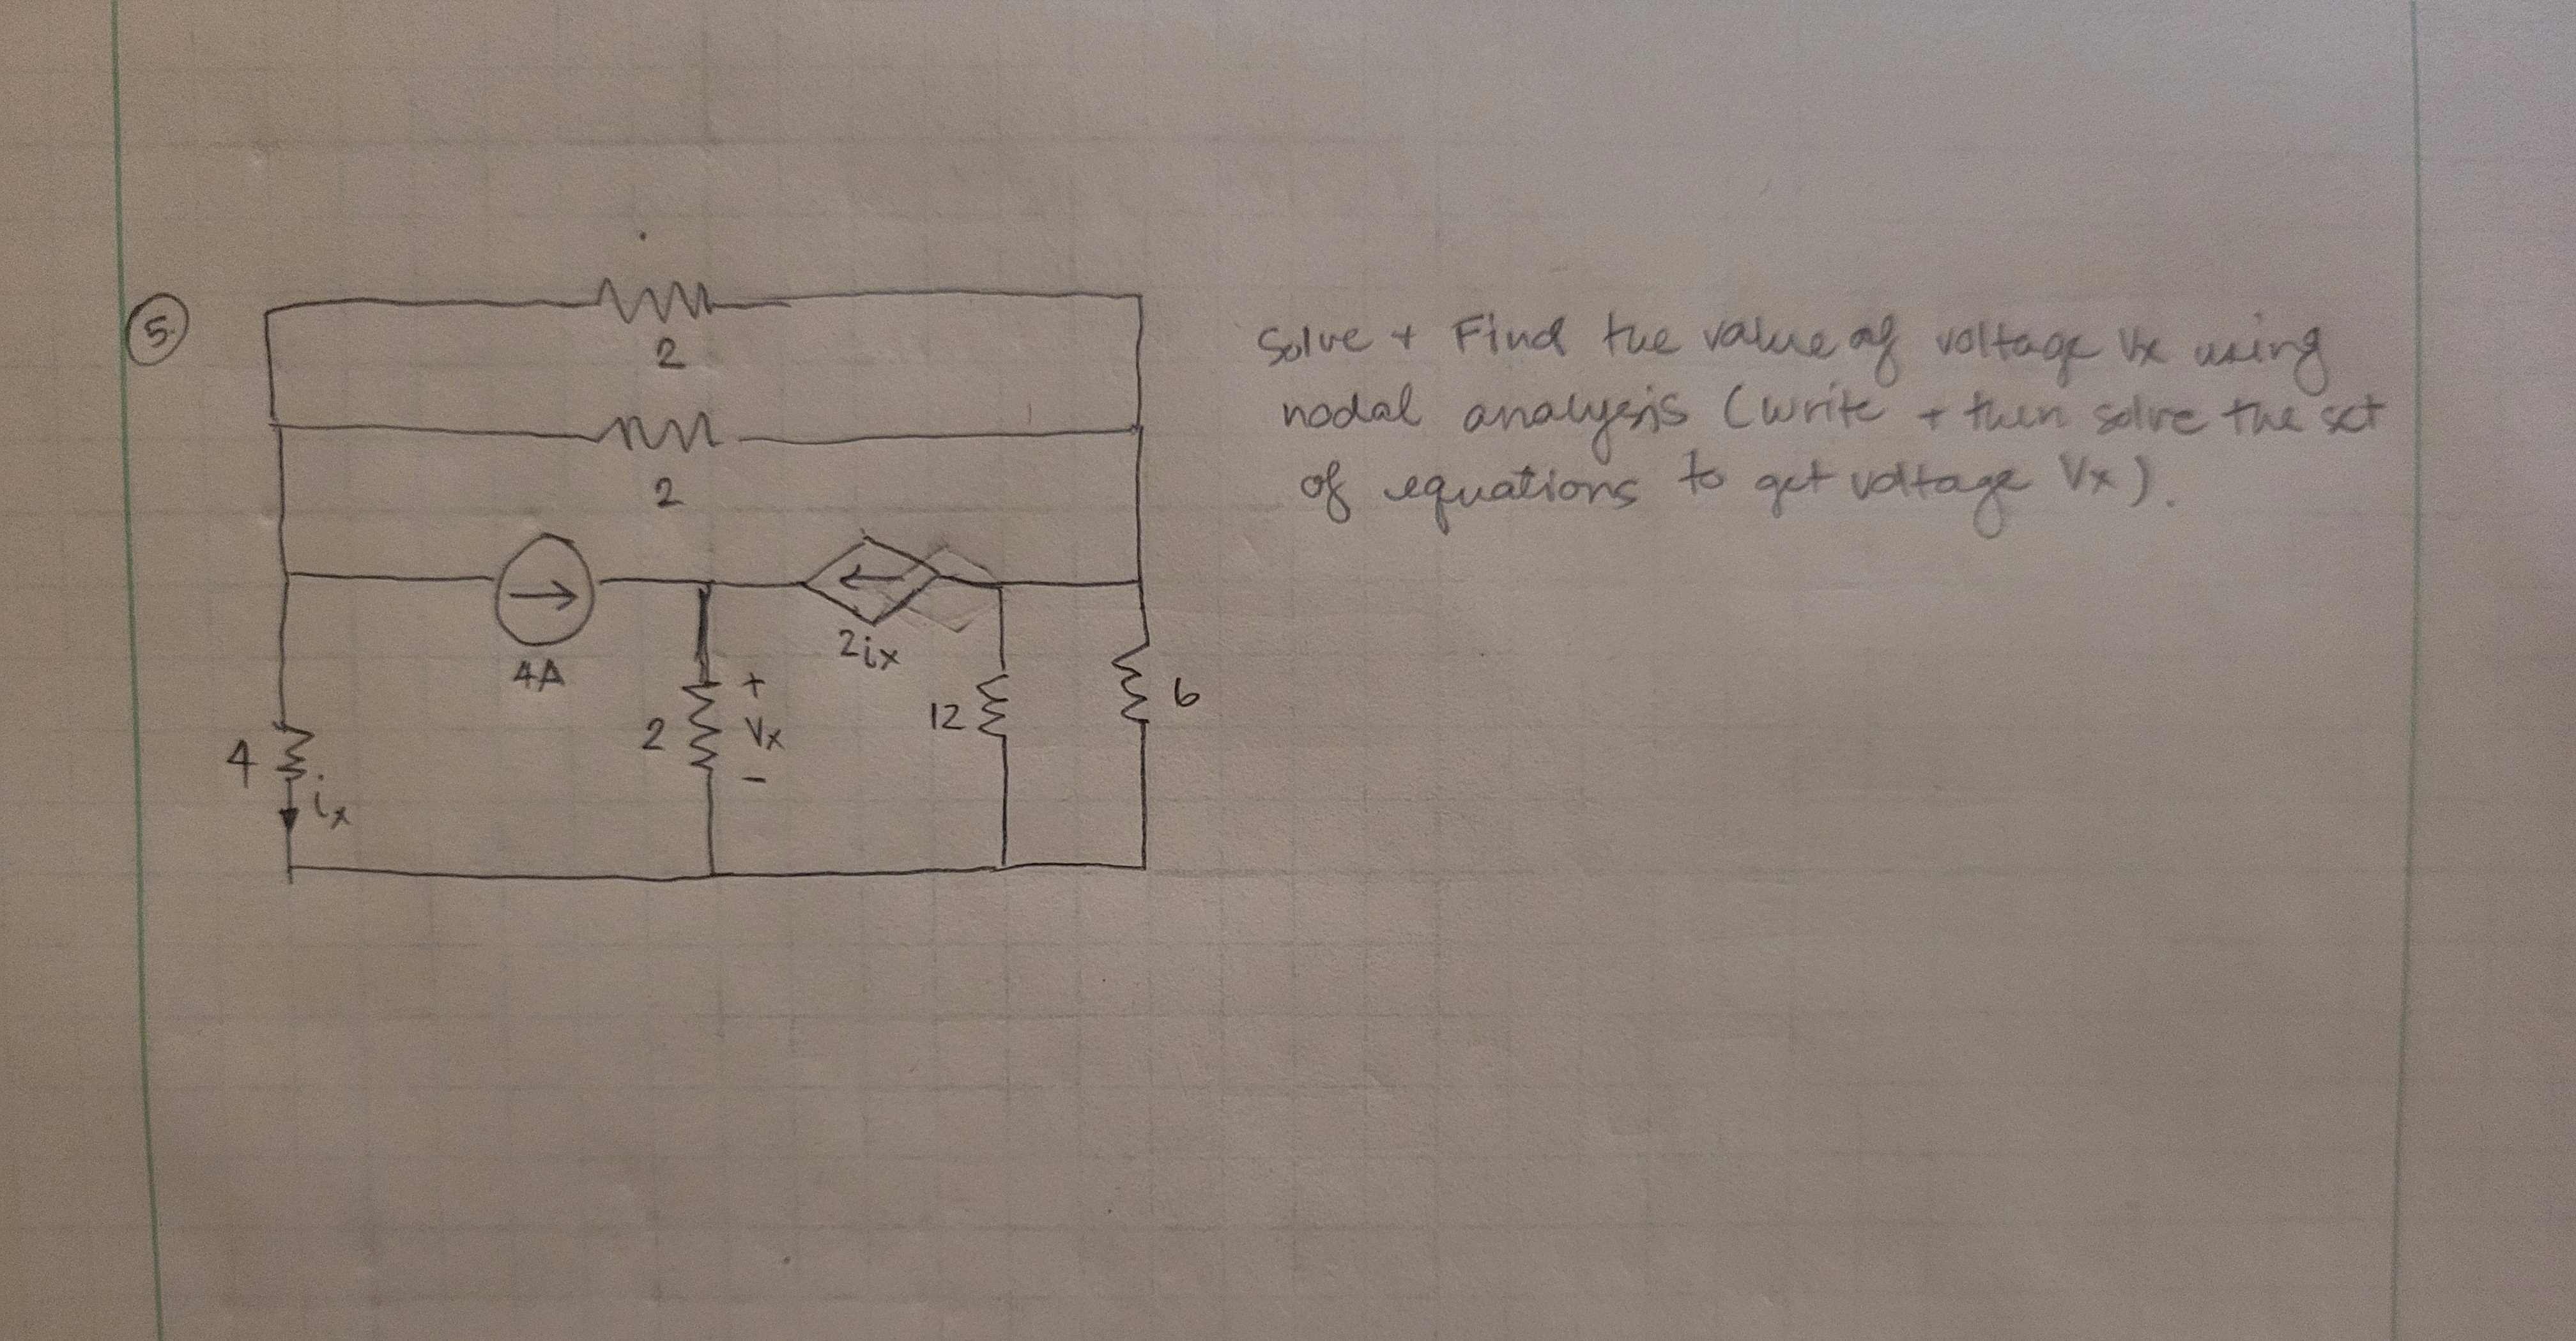 5.
2
2
4A
2ix
4
ix
2
+
Vx
-
12
6
Solve + Find the value of voltage Vx using
nodal analysis (write + then solve the set
of equations to get voltage Vx).